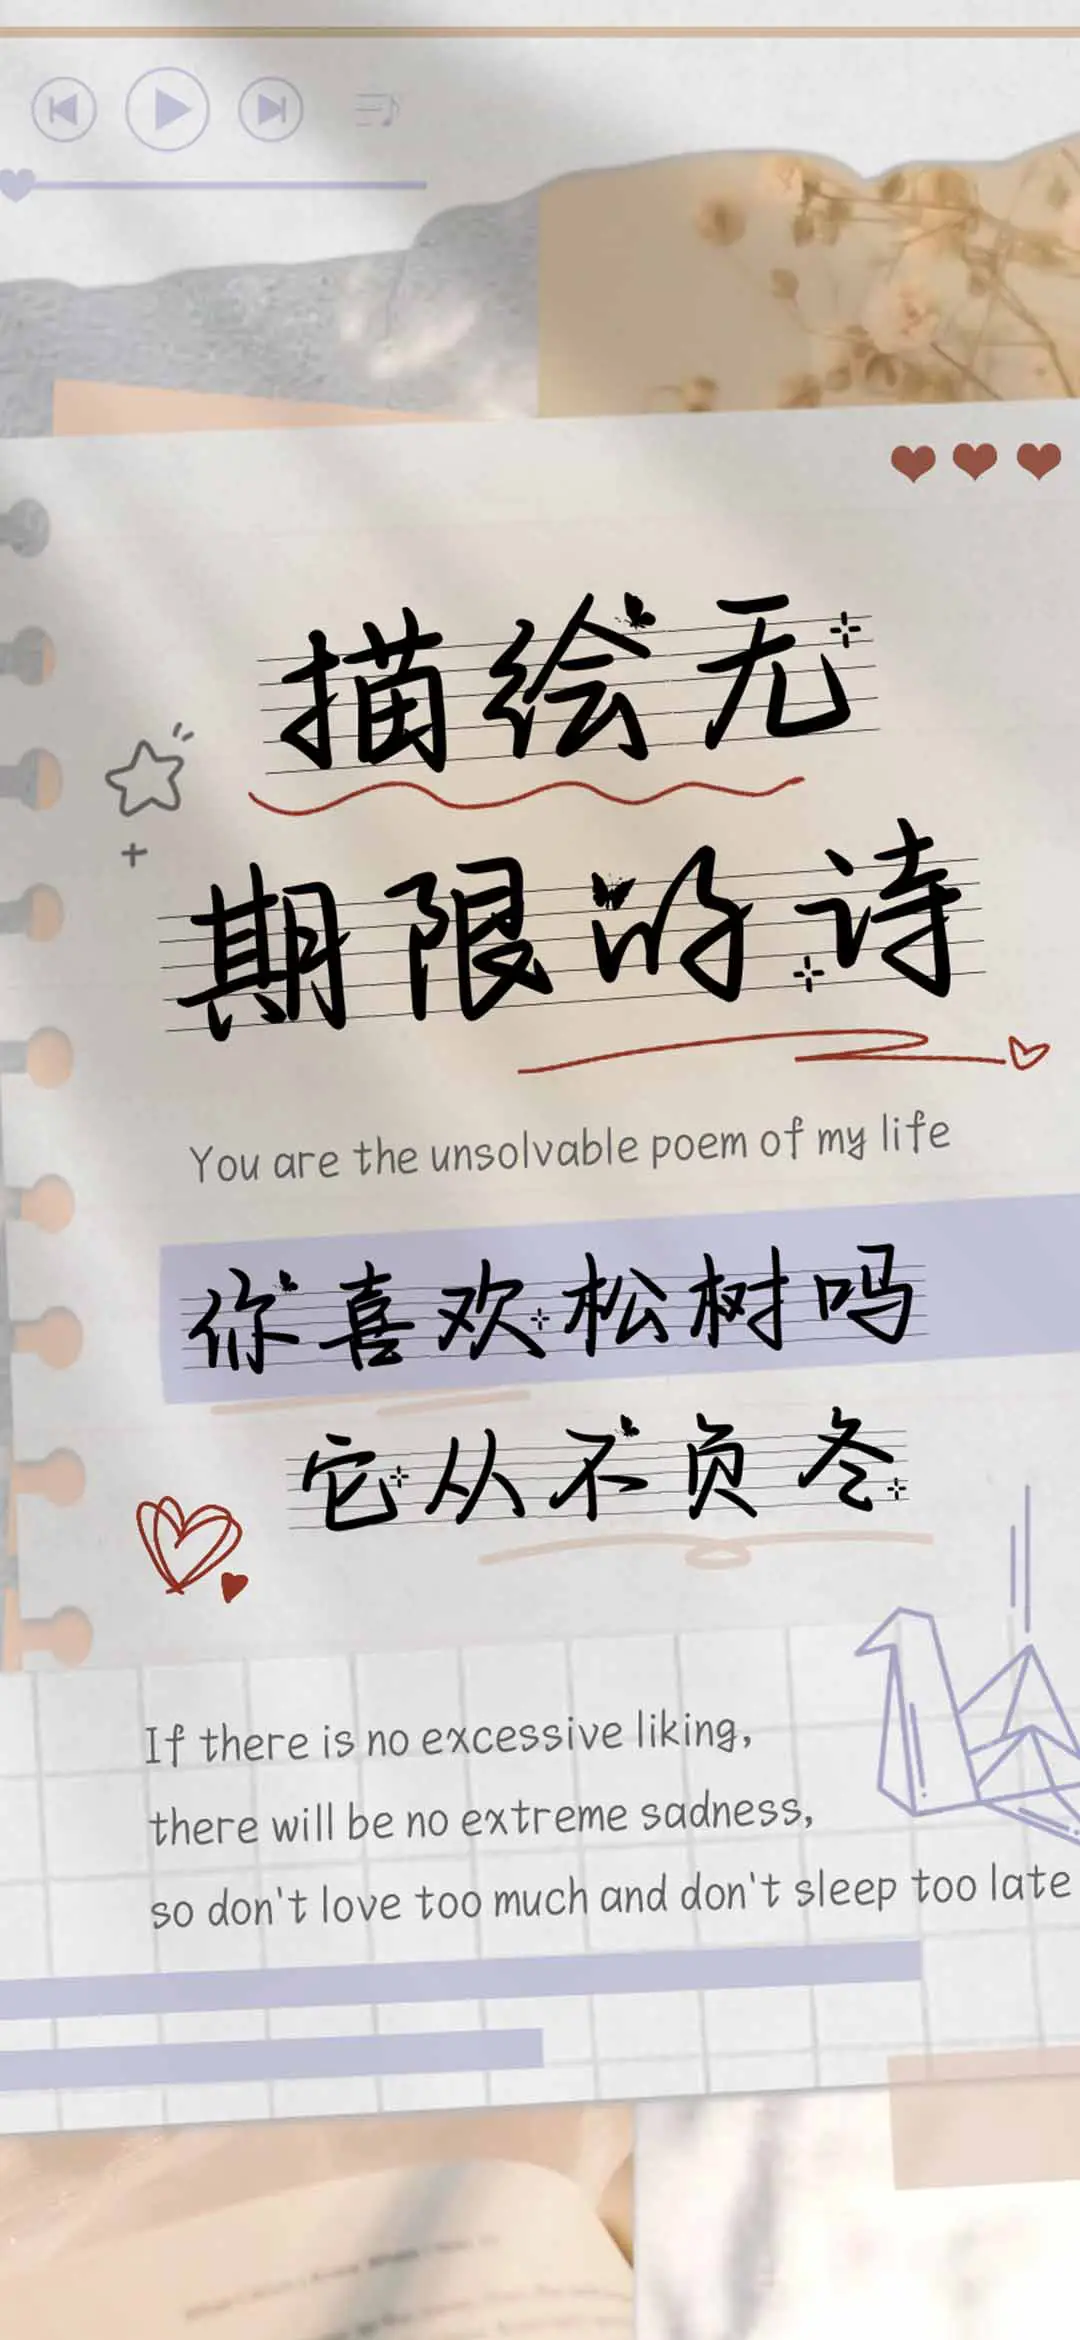 描绘无
期限的诗
You are the unsolvable poem of my life
你喜欢松树吗
它从不负冬
If there is no excessive liking,
there will be no extreme sadness,
so don't love too much and don't sleep too late